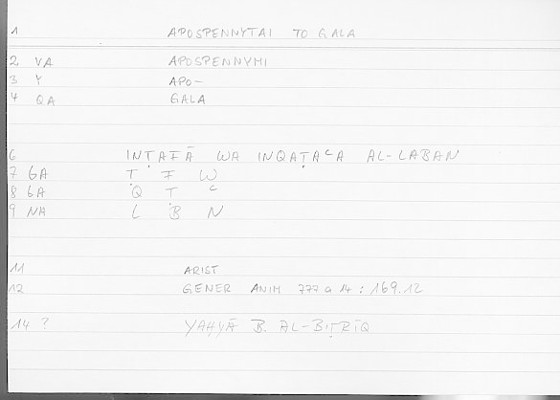 1 APOSPENNYTAI TO GALA
2 VA APOSPENNYMI
3 Y APO-
4 QA GALA
6 INṬAFĀ WA INQAṬAʿA AL-LABAN
7 GA Ṭ F W
8 GA Q Ṭ ʿ
9 NA L B N
11 ARIST
12 GENER ANIM 777 a 14 : 169.12
14 ? YAḤYĀ B. AL-BIṬRĪQ